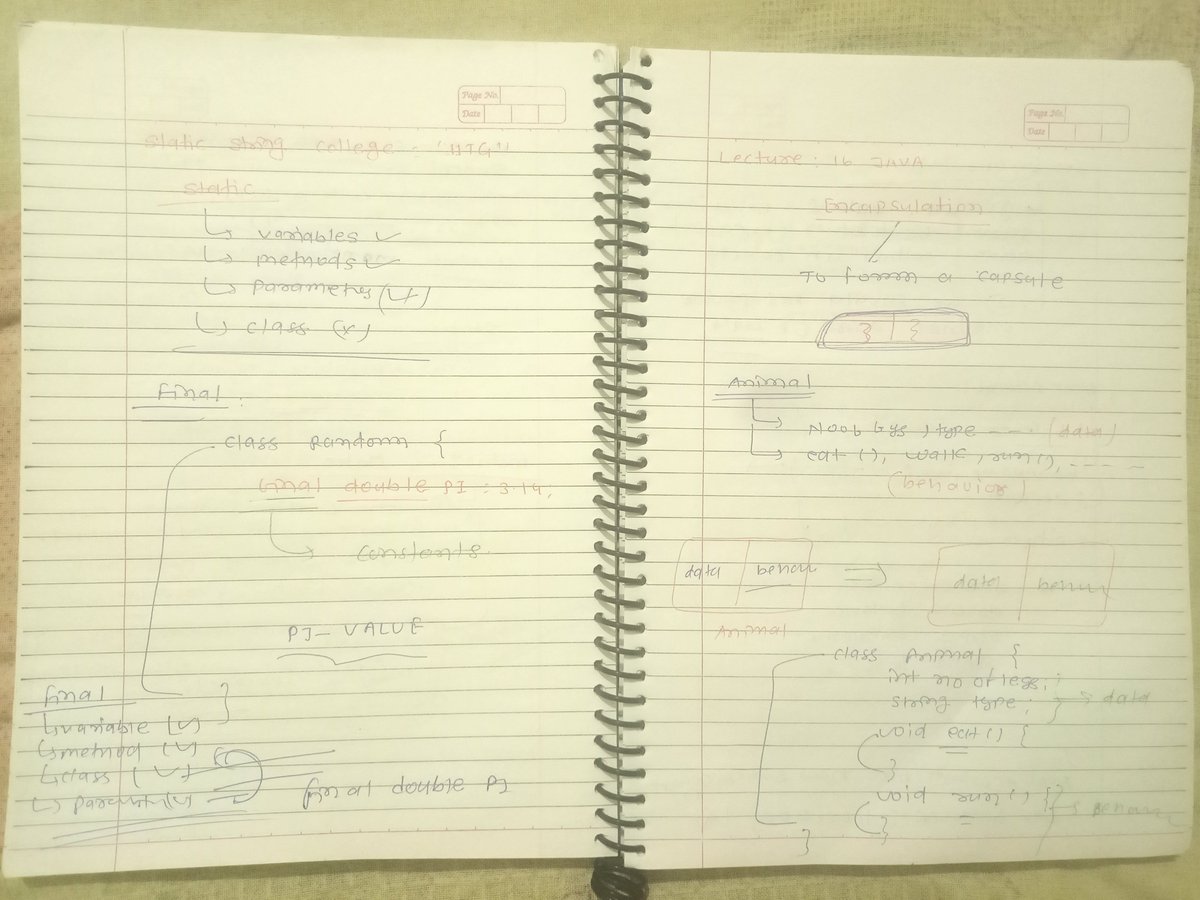 Page No.
Date
static string college = "IITG"
static
↳ variables ✓
↳ methods ✓
↳ class (x)
Final :
class Random {
final double PI = 3.14;
↳ constants.
PI - VALUE
}
final
↳ variable (✓)
↳ method (✓)
↳ class (✓)
final double PI
Page No.
Date
Lecture : 16 JAVA
Encapsulation
To form a capsule
Animal
↳ type ---- (data)
↳ eat (), walk, run(), ----
(behavior)
data behav ⇒ data behav
Animal
class Animal {
int no of legs;
string type; } → data
void eat() {
}
void run() {
}
}